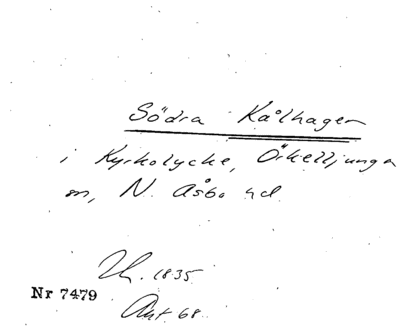 Södra Kålhagen
i Kyrkolycke, Örkelljunga
sn, N. Åsbo hd.
Uh. 1835
Nr 7479
Akt 68.